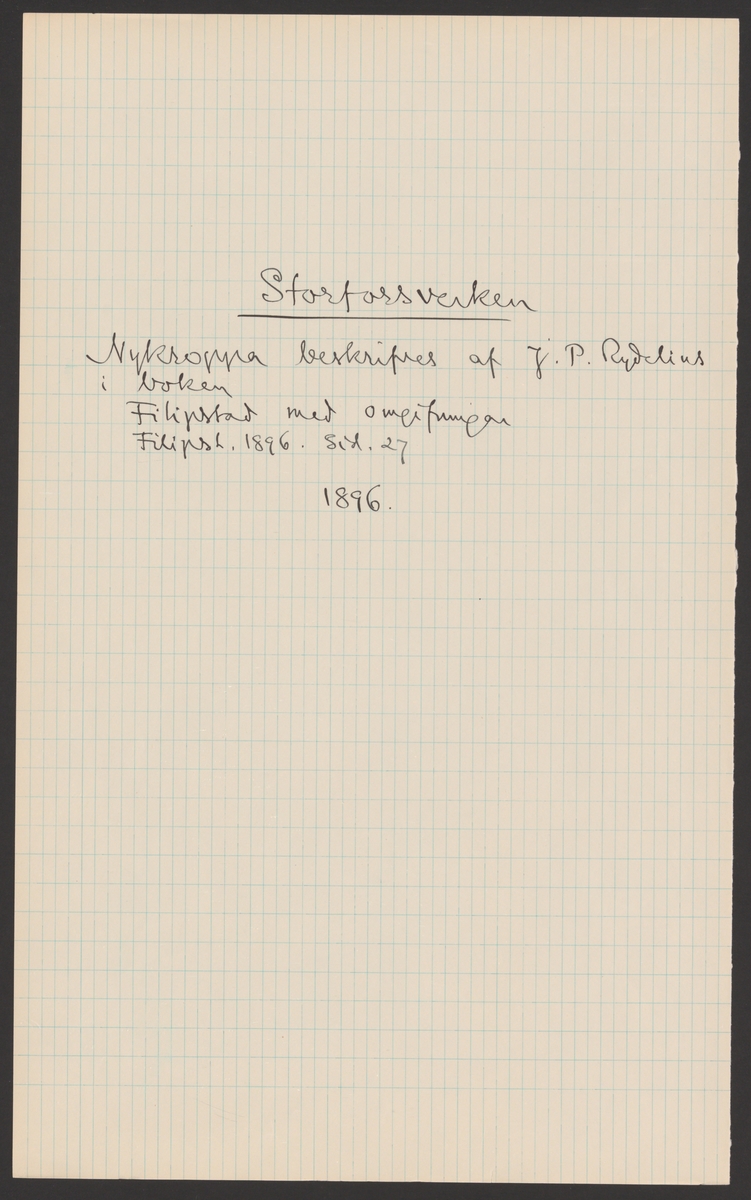 Storforsverken
Nykroppa beskrifves af J. P. Rydelius
i boken
Filipstad med omgifningar
Filipst. 1896. Sid. 27
1896.